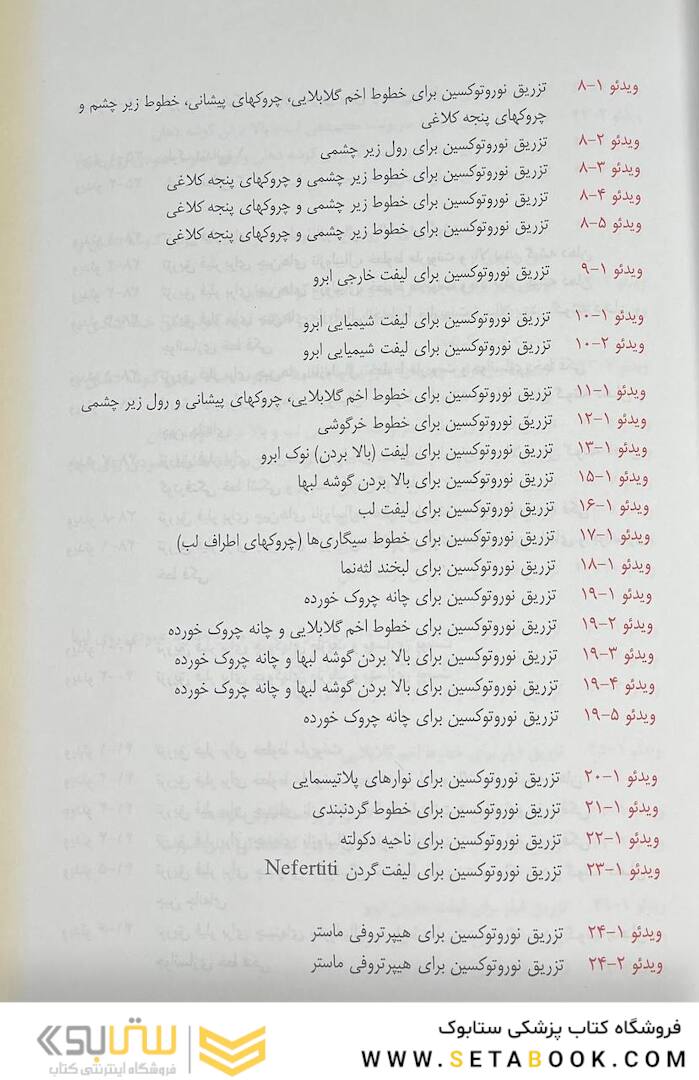 ویدئو ۱-۸ تزریق نوروتوکسین برای خطوط اخم گلابلایی، چروکهای پیشانی، خطوط زیر چشم و
چروکهای پنجه کلاغی
ویدئو ۲-۸ تزریق نوروتوکسین برای رول زیر چشمی
ویدئو ۳-۸ تزریق نوروتوکسین برای خطوط زیر چشمی و چروکهای پنجه کلاغی
ویدئو ۴-۸ تزریق نوروتوکسین برای خطوط زیر چشمی و چروکهای پنجه کلاغی
ویدئو ۵-۸ تزریق نوروتوکسین برای خطوط زیر چشمی و چروکهای پنجه کلاغی
ویدئو ۱-۹ تزریق نوروتوکسین برای لیفت خارجی ابرو
ویدئو ۱-۱۰ تزریق نوروتوکسین برای لیفت شیمیایی ابرو
ویدئو ۲-۱۰ تزریق نوروتوکسین برای لیفت شیمیایی ابرو
ویدئو ۱-۱۱ تزریق نوروتوکسین برای خطوط اخم گلابلایی، چروکهای پیشانی و رول زیر چشمی
ویدئو ۱-۱۲ تزریق نوروتوکسین برای خطوط خرگوشی
ویدئو ۱-۱۳ تزریق نوروتوکسین برای لیفت (بالا بردن) نوک ابرو
ویدئو ۱-۱۵ تزریق نوروتوکسین برای بالا بردن گوشه لبها
ویدئو ۱-۱۶ تزریق نوروتوکسین برای لیفت لب
ویدئو ۱-۱۷ تزریق نوروتوکسین برای خطوط سیگاری‌ها (چروکهای اطراف لب)
ویدئو ۱-۱۸ تزریق نوروتوکسین برای لبخند لثه‌نما
ویدئو ۱-۱۹ تزریق نوروتوکسین برای چانه چروک خورده
ویدئو ۲-۱۹ تزریق نوروتوکسین برای خطوط اخم گلابلایی و چانه چروک خورده
ویدئو ۳-۱۹ تزریق نوروتوکسین برای بالا بردن گوشه لبها و چانه چروک خورده
ویدئو ۴-۱۹ تزریق نوروتوکسین برای بالا بردن گوشه لبها و چانه چروک خورده
ویدئو ۵-۱۹ تزریق نوروتوکسین برای چانه چروک خورده
ویدئو ۱-۲۰ تزریق نوروتوکسین برای نوارهای پلاتیسمایی
ویدئو ۱-۲۱ تزریق نوروتوکسین برای خطوط گردنبندی
ویدئو ۱-۲۲ تزریق نوروتوکسین برای ناحیه دکولته
ویدئو ۱-۲۳ تزریق نوروتوکسین برای لیفت گردن Nefertiti
ویدئو ۱-۲۴ تزریق نوروتوکسین برای هیپرتروفی ماستر
ویدئو ۲-۲۴ تزریق نوروتوکسین برای هیپرتروفی ماستر
فروشگاه کتاب پزشکی ستابوک
WWW.SETABOOK.COM
ستابوک
فروشگاه اینترنتی کتاب